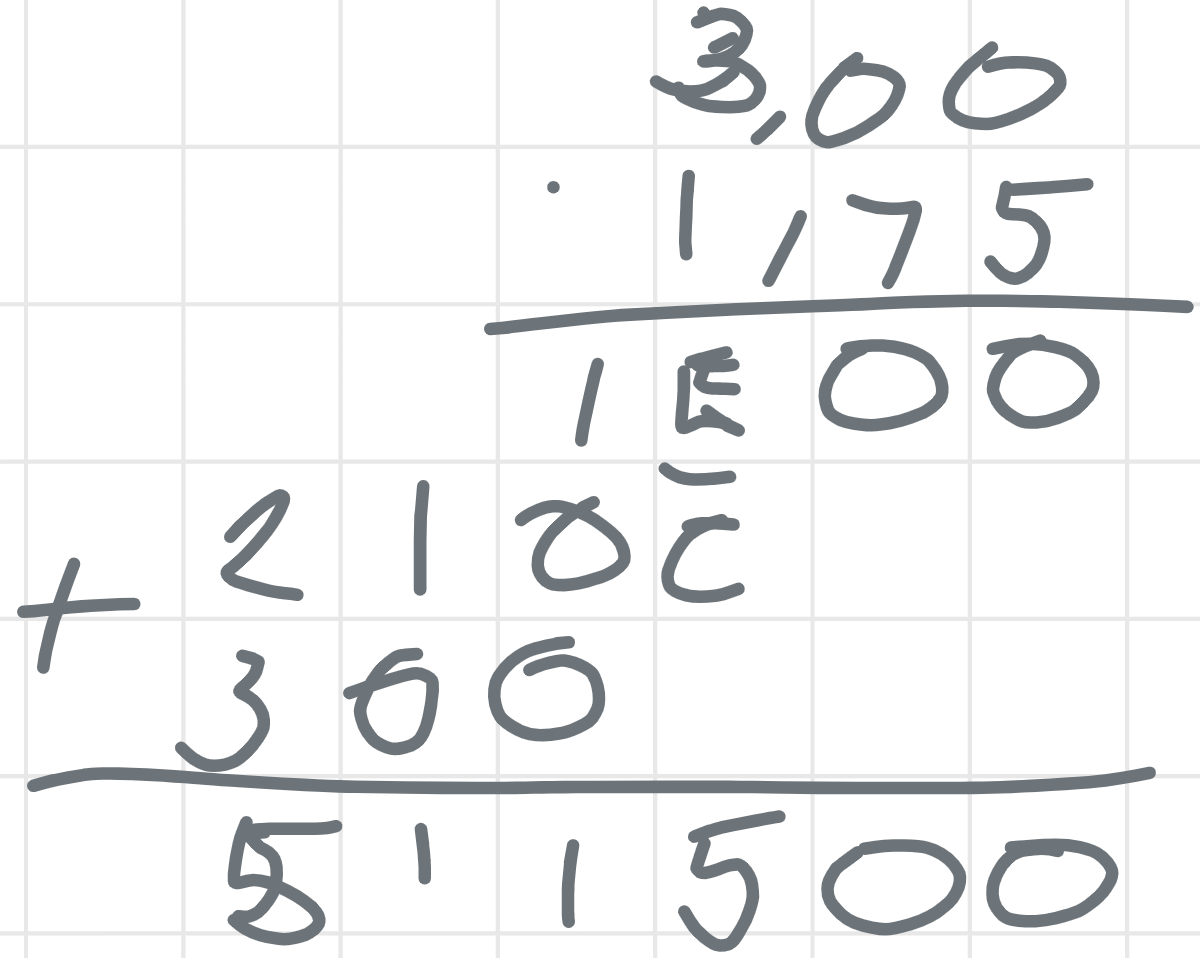 3,00
· 1,75
1500
+ 2100
300
511500